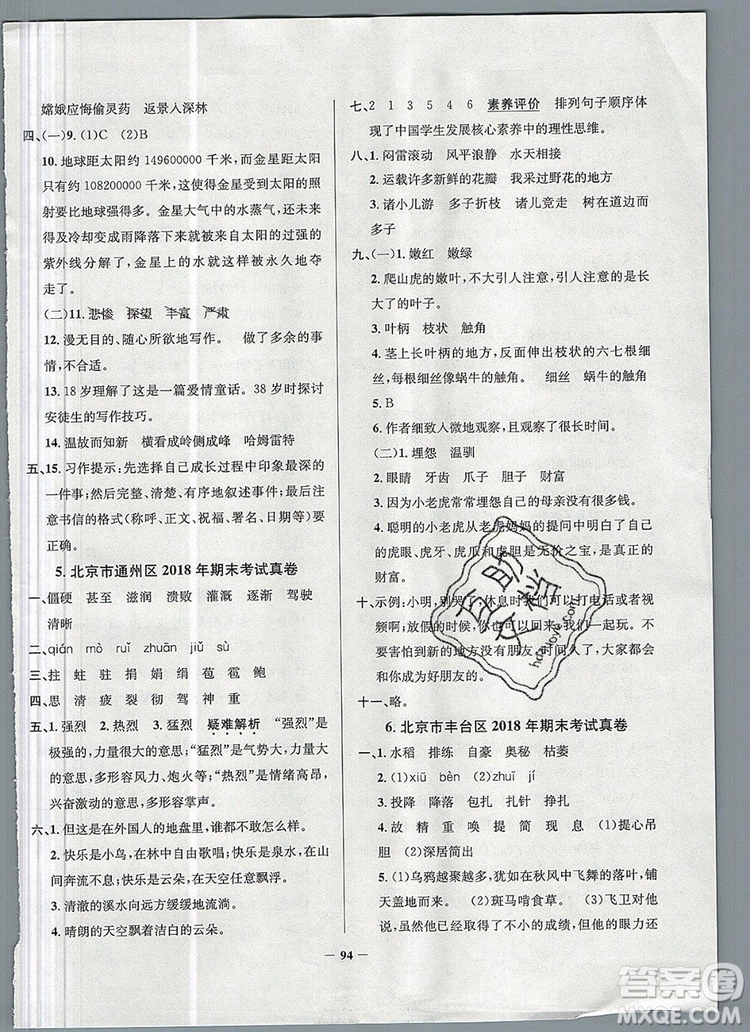 嫦娥应悔偷灵药　返景人深林
四、(一)9. (1)C　(2)B
10. 地球距太阳约 149600000 千米,而金星距太阳
只有约 108200000 千米,所以金星受到太阳的照
射要比地球强得多。金星大气中的水蒸气,来不
得及冷却变成雨降落下来,就被来自太阳的过强的
紫外线分解了,金星的水就这样被永久地夺
走了。
(二)11. 悲惨　探望　丰富　严肃
12. 漫无目的、随心所欲地写作。　做了多余的事
情,不合适。
13. 18 岁理解了这是一篇爱情童话。38 岁时探讨
安徒生的写作技巧。
14. 温故而知新　横看成岭侧成峰　哈姆雷特
五、15. 习作提示:先选择自己成长过程中印象最深的
一件事;完整、清楚、有序地叙述事件;最后注
意书信的格式(称呼、正文、祝福、署名、日期等)要
正确。
5. 北京市通州区 2018 年期末考试真卷
一、僵硬　甚至　滋润　溃败　灌溉　逐渐　驾驶
清晰
二、qián　mò　ruǐ　zhuān　jiǔ　sù
三、拄　蛀　驻　捐　娟　绢　苞　雹　鲍
四、思　清　疲　裂　彻　驾　神　重
五、1. 强烈　2. 热烈　3. 猛烈　疑难解析　“强烈”是
极强的、力量很大的意思,多形容愿望、力量大
的意思;“猛烈”是气势大、力量大的意
思,多形容风力、炮火等;“热烈”是情绪高昂,
兴奋激动的意思,多形容掌声。
六、1. 但这是在外国人的地盘里,谁都不敢怎么样。
2. 快乐是小鸟,在林中自由歌唱;快乐是泉水,在山
间奔流不息;快乐是云朵,在天空任意飘浮。
3. 清澈的溪水向远方缓缓地流淌。
4. 晴朗的天空飘着洁白的云朵。
七、2　1　3　5　4　6　素养评价　排列句子顺序体
现了中国学生发展核心素养中的理性思维。
八、1. 闷雷滚动　风平浪静　水天相接
2. 运载许多新鲜的花瓣　我采过野花的地方
3. 诸小儿游　多子折枝　诸儿竞走　树在道边而
多子
九、(一)1. 嫩红　嫩绿
2. 爬山虎的嫩叶,不大引人注意,引人注意的是长
大了的叶子。
3. 叶柄　枝状　触角
4. 茎上长叶柄的地方,反面伸出枝状的六七根细
丝,每根细丝像蜗牛的触角。　细丝　蜗牛的触角
5. B
6. 作者细致人微地观察,且观察了很长时间。
(二)1. 埋怨　温驯
2. 眼睛　牙齿　爪子　胆子　财富
3. 因为小老虎常常埋怨自己的母亲没有钱。
4. 聪明的小老虎从老虎妈妈的提问中明白了自己
的虎眼、虎牙、虎爪、虎胆是无价之宝,是真正的
财富。
十、示例:小明,别哭了,休息时我们可以打电话或者视
频啊!放假的时候,你也可以回来,我们一起玩。不
要害怕到新的地方没有朋友,大家都会和你成
为好朋友的。
十一、略。
6. 北京市丰台区 2018 年期末考试真卷
一、1. 水稻　排练　自豪　奥秘　枯萎
2. (1)xiū　bèn　(2)zhuī　jí
3. 投降　降落　包扎　扎针　挣扎
4. 故　精　重　唤　提　简　现　息　(1)提心吊
胆　(2)深居简出
5. (1)乌鸦越聚越多,犹如在秋风中飞舞的落叶,铺
天盖地。　(2)斑马啃食草。　(3)飞卫对他
说,尽管他已经取得了不小的成绩,但他的眼力还
94
互助文档
hdzuoyebang.com
答案圈
MXQE.COM